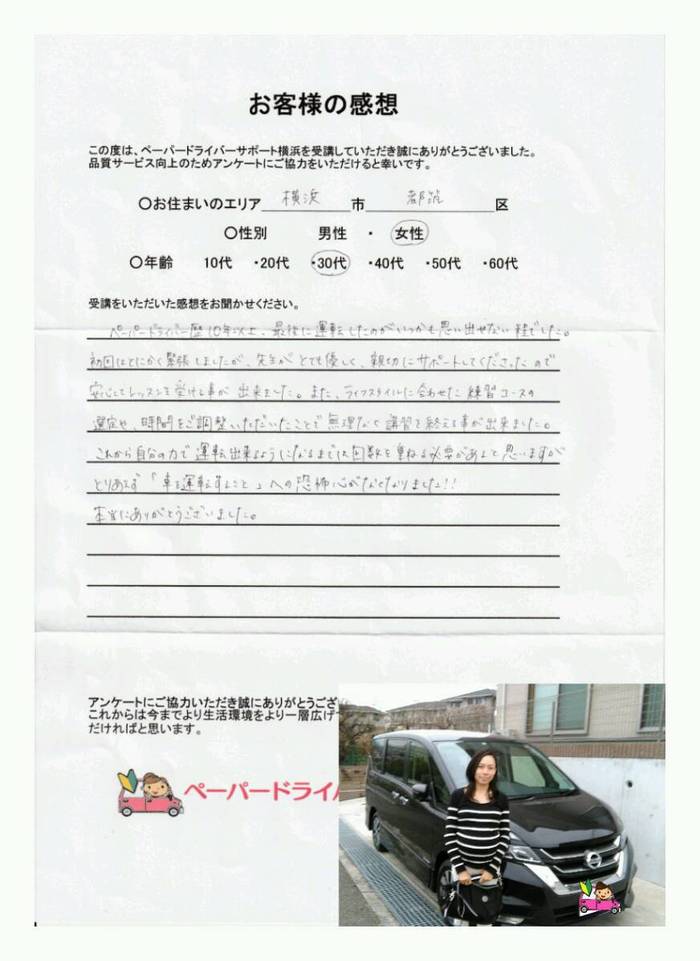 お客様の感想
この度は、ペーパードライバーサポート横浜を受講していただき誠にありがとうございました。
品質サービス向上のためアンケートにご協力をいただけると幸いです。
〇お住まいのエリア 横浜 市 都筑 区
〇性別 男性 ・ 女性
〇年齢 10代 ・20代 ・30代 ・40代 ・50代 ・60代
受講をいただいた感想をお聞かせください。
ペーパードライバー歴10年以上、最後に運転したのがいつかも思い出せない程でした。
初回はとにかく緊張しましたが、先生がとても優しく、親切にサポートしてくださったので
安心してレッスンを受ける事が出来ました。また、ライフスタイルに合わせた練習コースの
選定や、時間をご調整いただいたことで無理なく講習を終える事が出来ました。
これから自分の力で運転出来るようになるまでは回数を重ねる必要があると思いますが
とりあえず「車を運転すること」への恐怖心がなくなりました!!
本当にありがとうございました。
アンケートにご協力いただき誠にありがとうござ
これからは今までより生活環境をより一層広げ
だければと思います。
ペーパードライ